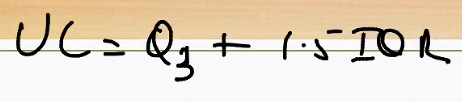 UL = Q₃ + 1.5 IQR